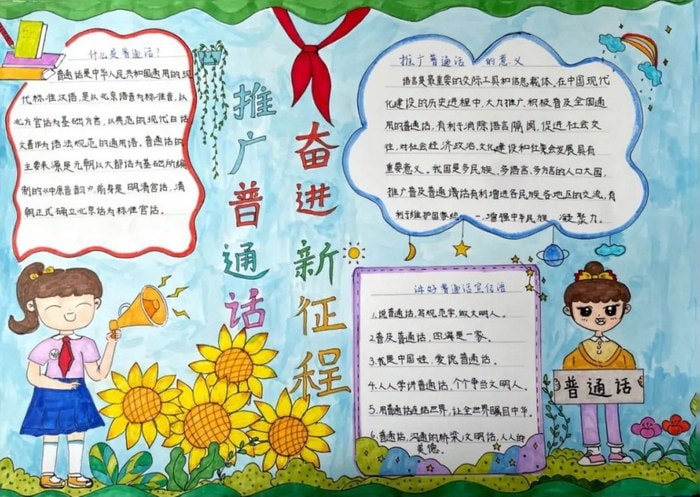 什么是普通话?
普通话是中华人民共和国通用的现
代标准汉语,是以北京语音为标准音,以
北方官话为基础方言,以典范的现代白话
文著作为语法规范的通用语,普通话的
主要来源是元朝以大都话为基础所编
制的《中原音韵》,前身是明清官话,清
朝正式确立北京话为标准官话。
推广普通话
奋进新征程
推广普通话的意义
语言是最重要的交际工具和信息载体,在中国现代
化建设的历史进程中,大力推广,积极普及全国通
用的普通话,有利于消除语言隔阂,促进社会交
往,对社会经济政治,文化建设和社会发展具有
重要意义。我国是多民族,多语言,多方言的人口大国,
推广普及普通话有利增进各民族各地区的交流,有
利于维护国家统一,增强中华民族凝聚力。
讲好普通话宣传语
1.说普通话,写规范字,做文明人。
2.普及普通话,四海是一家。
3.我是中国娃,爱说普通话。
4.人人学讲普通话,个个争当文明人。
5.用普通话连结世界,让全世界瞩目中华。
6.普通话,沟通的桥梁,文明话,人人的
美德。
普通话